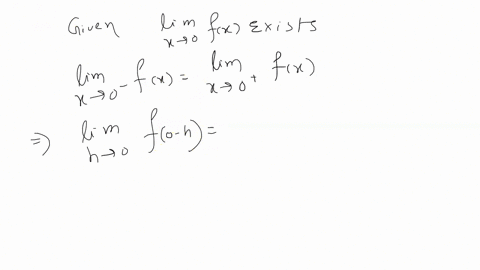 Given lim x→0 f(x) Exists
lim x→0⁻ f(x) = lim x→0⁺ f(x)
⇒ lim h→0 f(0-h) =